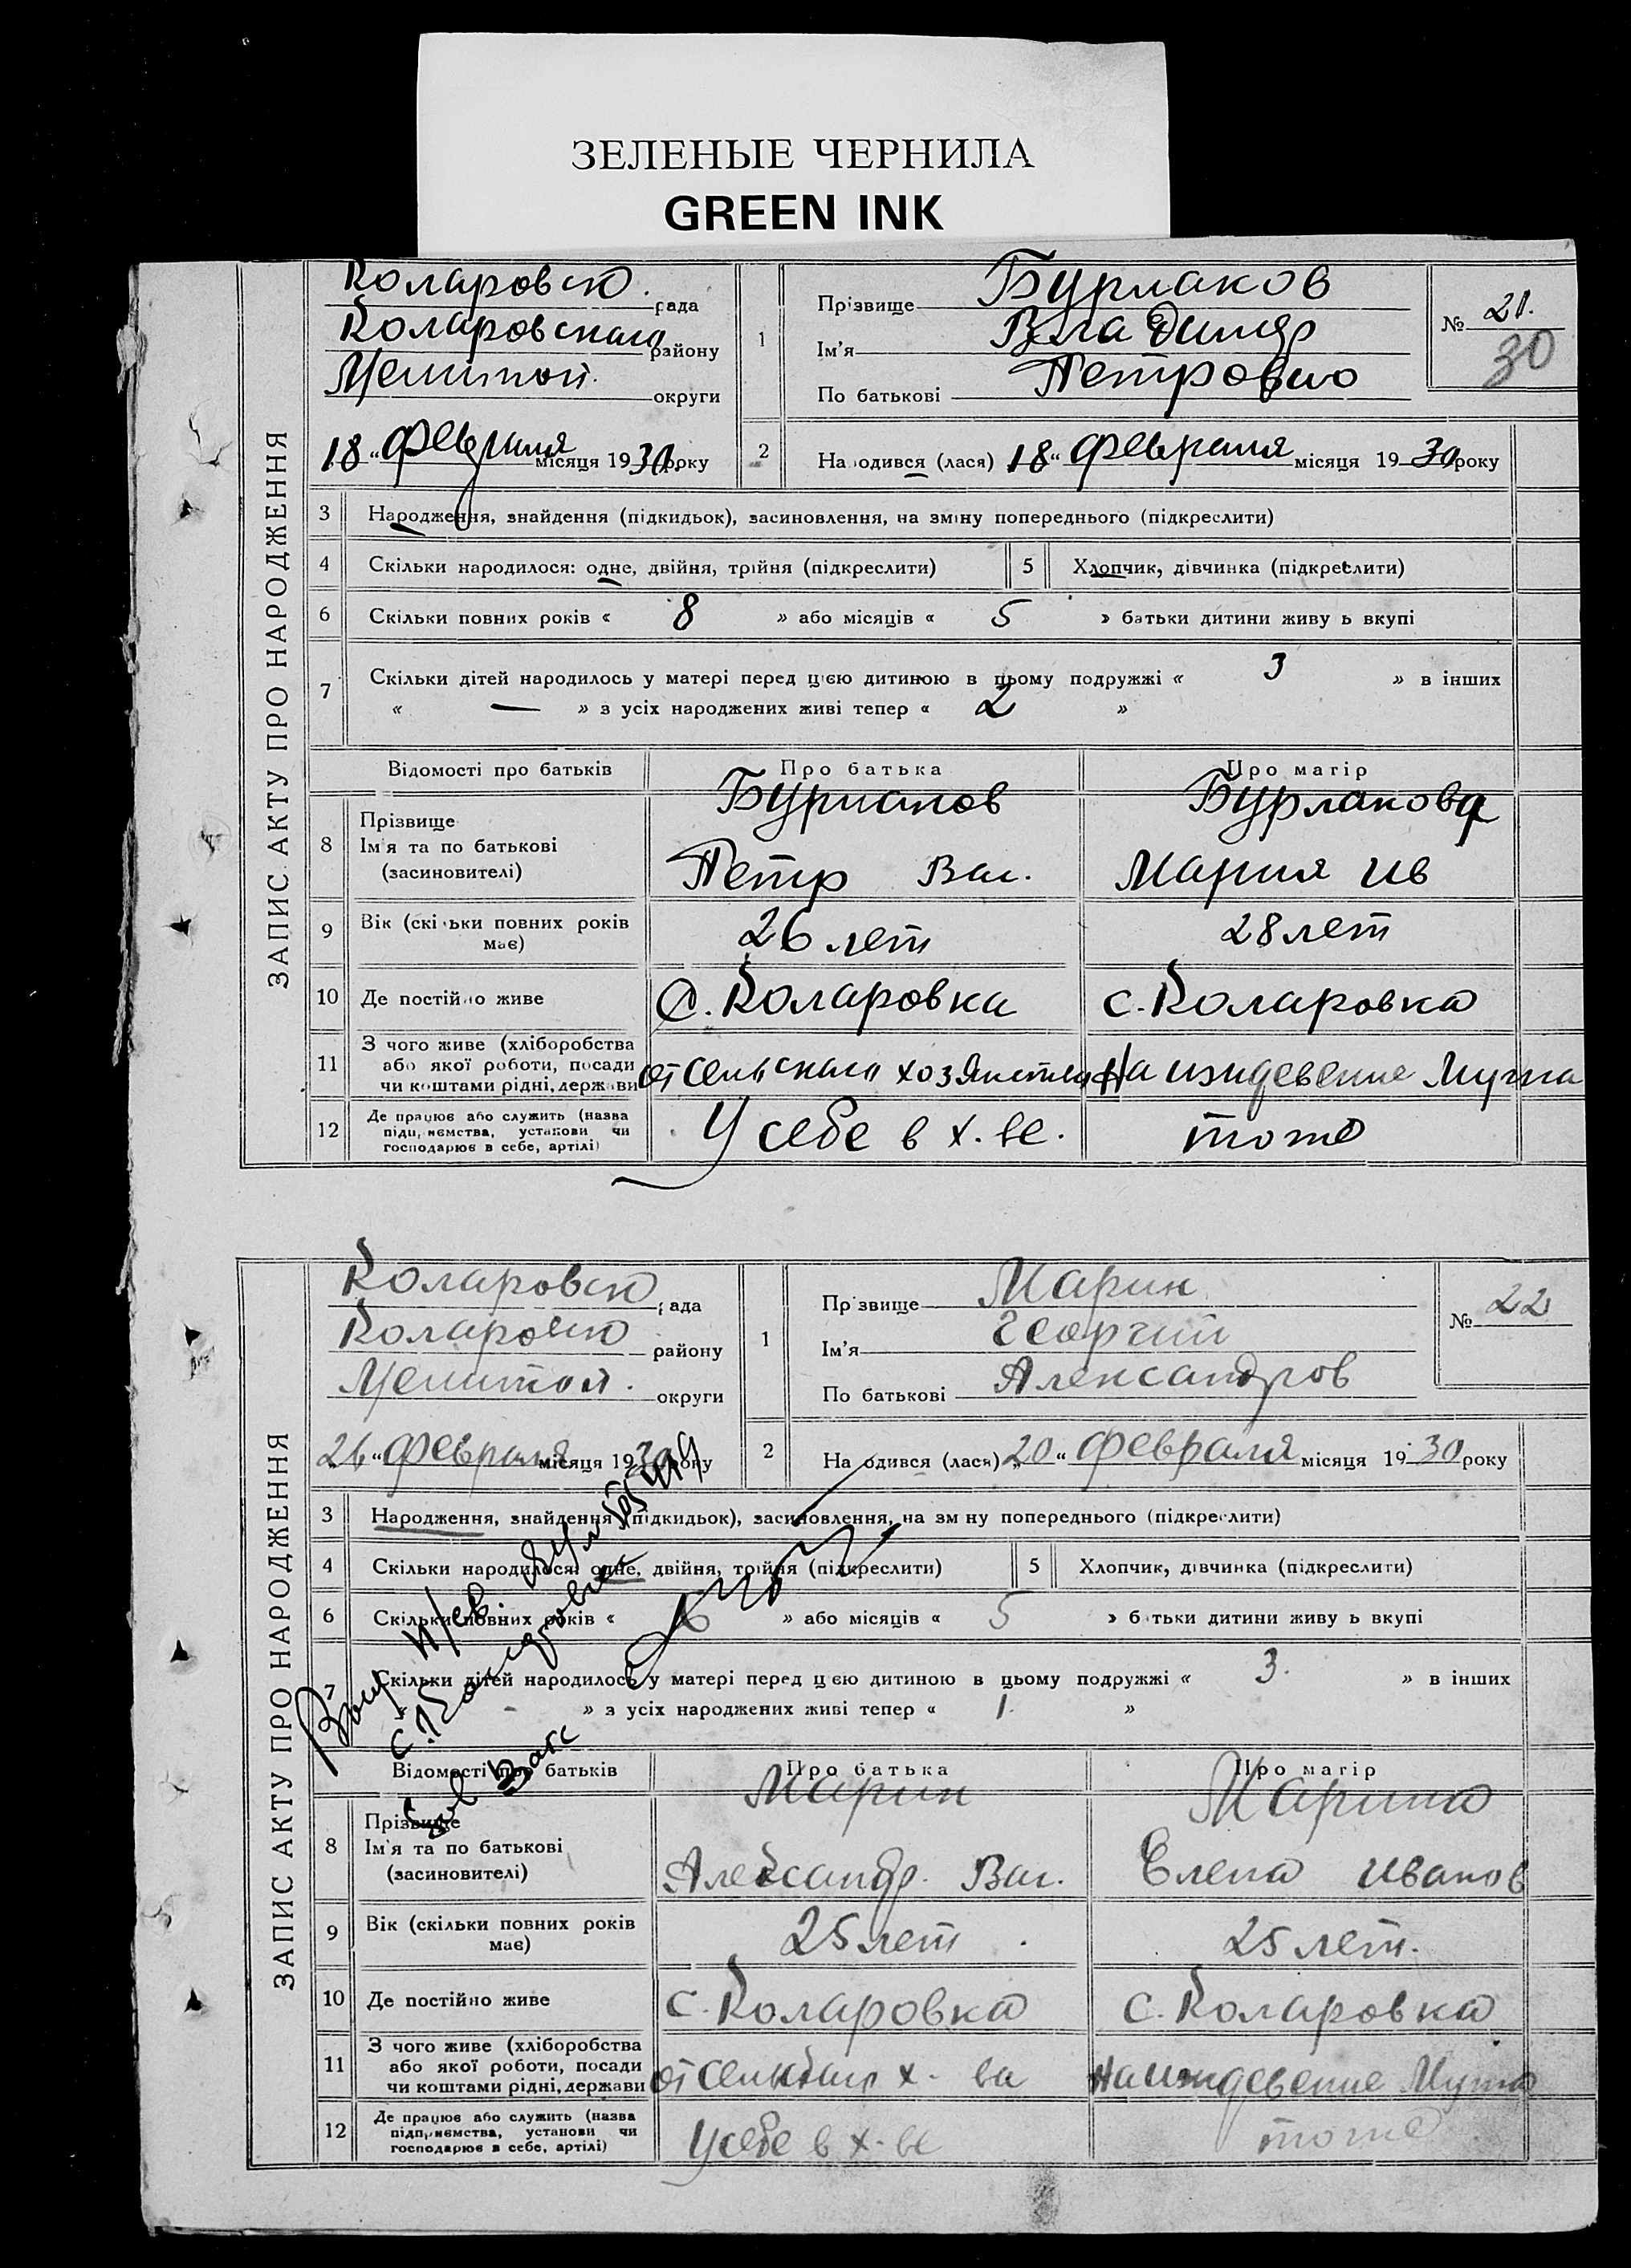 ЗЕЛЕНЫЕ ЧЕРНИЛА
GREEN INK
ЗАПИС АКТУ ПРО НАРОДЖЕННЯ
Коларовско рада
Коларовского району
Мелитоп. округи
18 « февраля місяця 1930 року
1 Прізвище Бурлаков
Ім'я Владимир
По батькові Петрович
№ 21.
30
2 Народився (лася) 18 « февраля місяця 1930 року
3 Народження, знайдення (підкидьок), засиновлення, на зміну попереднього (підкреслити)
4 Скільки народилося: одне, двійня, трійня (підкреслити) 5 Хлопчик, дівчинка (підкреслити)
6 Скільки повних років « 8 » або місяців « 5 » батьки дитини живуть вкупі
7 Скільки дітей народилось у матері перед цією дитиною в цьому подружжі « 3 » в інших
« — » з усіх народжених живі тепер « 2 »
Відомості про батьків Про батька Про матір
8 Прізвище Бурлаков Бурлакова
Ім'я та по батькові
(засиновителі) Петр Вас. Мария Ив
9 Вік (скільки повних років має) 26 лет 28 лет
10 Де постійно живе с. Коларовка с. Коларовка
11 З чого живе (хліборобства
або якої роботи, посади
чи коштами рідні, держави от сельского хозяйства На иждевение Мужа
12 Де працює або служить (назва
підприємства, установи чи
господарює в себе, артілі) У себе в х-ве. тоже
ЗАПИС АКТУ ПРО НАРОДЖЕННЯ
Коларовско рада
Коларовско району
Мелитоп. округи
26 « февраля місяця 1930 року
1 Прізвище Марин
Ім'я Георгий
По батькові Александров
№ 22
2 Народився (лася) 20 « февраля місяця 1930 року
3 Народження, знайдення (підкидьок), засиновлення, на зміну попереднього (підкреслити)
4 Скільки народилося: одне, двійня, трійня (підкреслити) 5 Хлопчик, дівчинка (підкреслити)
6 Скільки повних років « 6 » або місяців « 5 » батьки дитини живуть вкупі
7 Скільки дітей народилось у матері перед цією дитиною в цьому подружжі « 3. » в інших
« - » з усіх народжених живі тепер « 1. »
Зав Загс
Відомості про батьків Про батька Про матір
8 Прізвище Марин Марина
Ім'я та по батькові
(засиновителі) Александр. Вас. Елена Иванов
9 Вік (скільки повних років має) 25 лет 25 лет.
10 Де постійно живе с. Коларовка с. Коларовка
11 З чого живе (хліборобства
або якої роботи, посади
чи коштами рідні, держави от сельского х-ва На иждевение Мужа
12 Де працює або служить (назва
підприємства, установи чи
господарює в себе, артілі) У себе в х-ве тоже